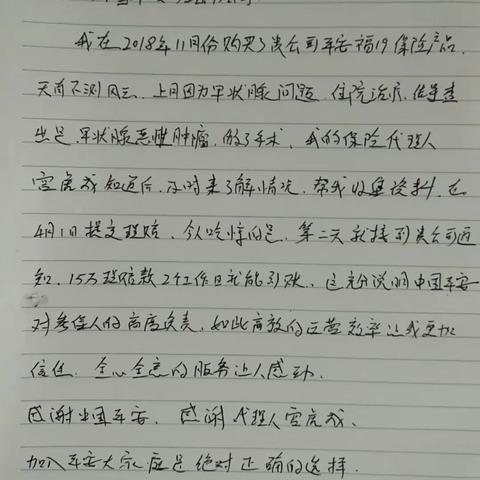 我在2018年11月份购买了贵公司平安福19保险产品,
天有不测风云、上月因为甲状腺问题、住院治疗,结果查
出是甲状腺恶性肿瘤,做了手术、我的保险代理人
宫虎成知道后,及时来了解情况,帮我收集资料,在
4月1日提交理赔、令人吃惊的是,第二天就接到贵公司通
知、15万理赔款2个工作日就能到账、这充分说明中国平安
对参保人的高度负责,如此高效的运营效率让我更加
信任、全心全意的服务让人感动.
感谢中国平安、感谢代理人宫虎成、
加入平安大家庭是绝对正确的选择.